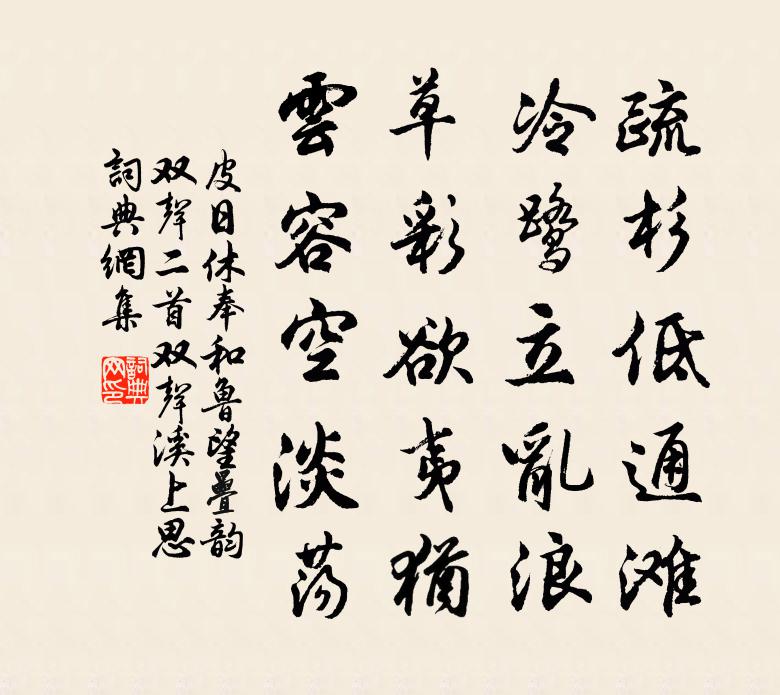 疏杉低通滩
冷鹭立亂浪
草彩欲夷猶
雲容空淡荡
皮日休奉和魯望疊韵
双聲二首双聲溪上思
詞典網集
詞典
网印